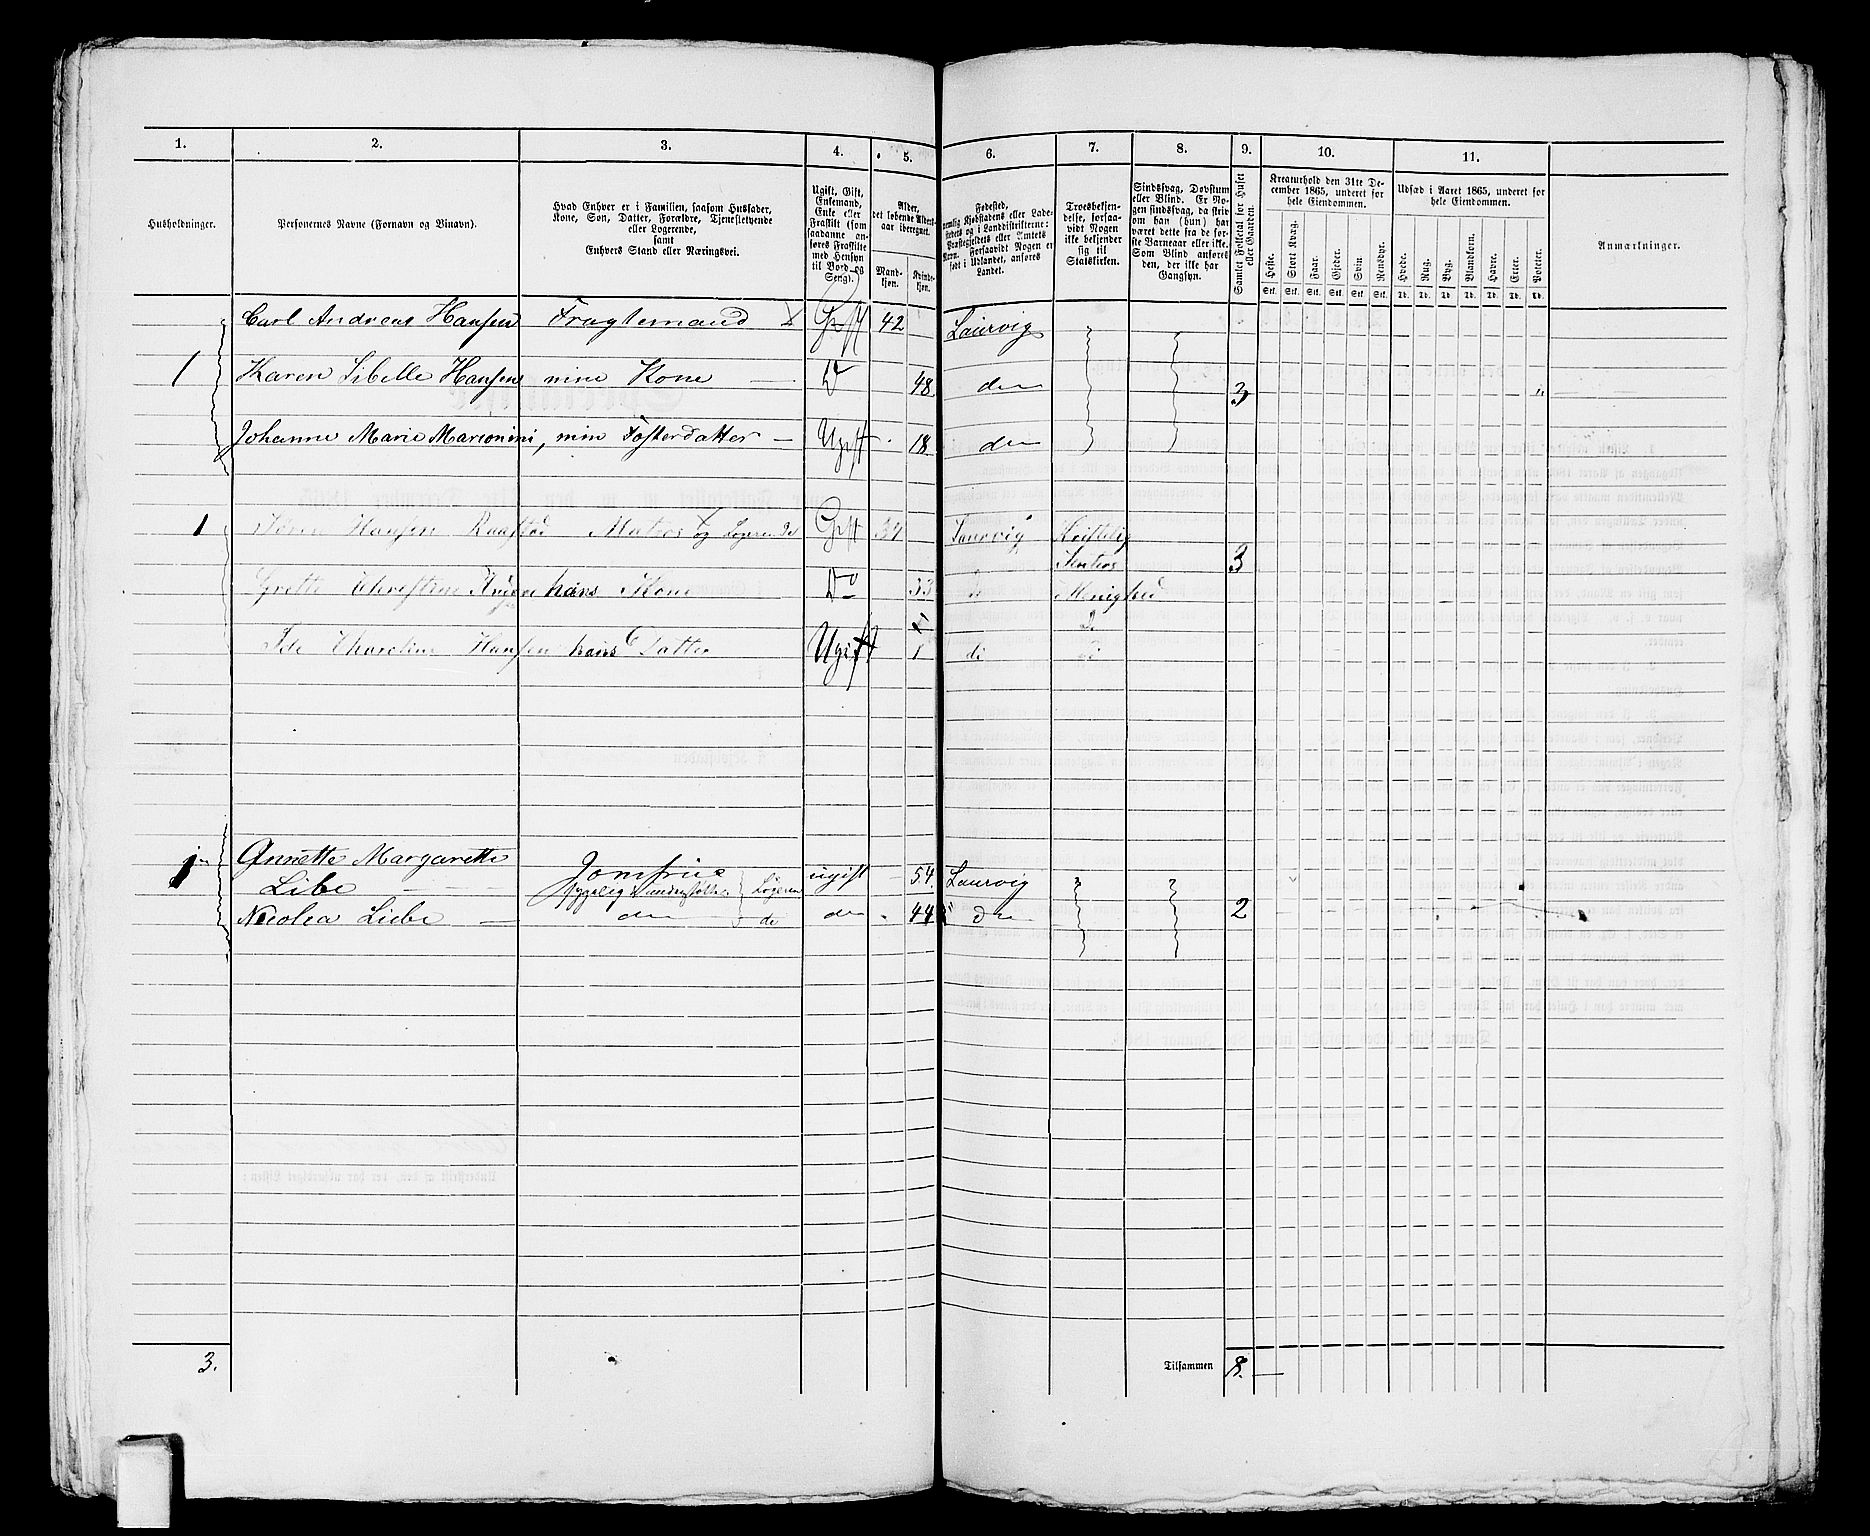 1.
2.
3.
4.
5.
6.
7.
8.
9.
10.
11.
Husholdninger.
Personernes Navne (Fornavn og Binavn).
Hvad Enhver er i Familien, saasom Husfader,
Kone, Søn, Datter, Forældre, Tjenestetyende
eller Logerende,
samt
Enhvers Stand eller Næringsvei.
Ugift, Gift,
Enkemand,
Enke eller
Fraskilt (som
saadanne an-
føres Fraskilte
med Hensyn
til Bord og
Seng).
Alder,
det løbende Alders-
aar iberegnet.
Mand-
kjøn.
Kvinde-
kjøn.
Fødested,
nemlig Kjøbstadens eller Lade-
stedets og i Landdistrikterne:
Præstegjeldets eller Sognets
Navn. Forsaavidt Nogen er
født i Udlandet, anføres
Landet.
Troesbekjen-
delse, forsaa-
vidt Nogen
ikke bekjender
sig til
Statskirken.
Sindssvag, Døvstum
eller Blind. Er No-
gen sindssvag, da skriv
om han (hun) har
været dette fra de før-
ste Barneaar eller ikke.
Som Blind anføres
den, der ikke har
Gangsyn.
Samlet Folketal for Huset
eller Gaarden.
Kreaturhold den 31te De-
cember 1865, underet for
hele Eiendommen.
Heste. Stort Kvæg. Faar. Gjeder. Svin. Rensdyr.
Stk. Stk. Stk. Stk. Stk. Stk.
Udsæd i Aaret 1865, underet for
hele Eiendommen.
Hvede. Rug. Byg. Blandkorn. Havre. Erter. Poteter.
Td. Td. Td. Td. Td. Td. Td.
Anmærkninger.
Carl Andreas Hansen Fragtemand X Gift 42 Laurvig
1 Karen Sibelle Hansen mine Kone — Do 48 do 3
Johanne Marie Marconini, min Fosterdatter — Ugift 18 do
1 Søren Hansen Matros og Logerende Gift 34 Laurvig Kristelig
3
Grette Christine hans Kone Do 33 Menighed
Ida Hansen hans Datter Ugift 1 do
1 Annette Margarette Jomfrue
Libe ugift 54. Laurvig
Nicolea Liebe — do do do 44 do 2
3.
Tilsammen 8.